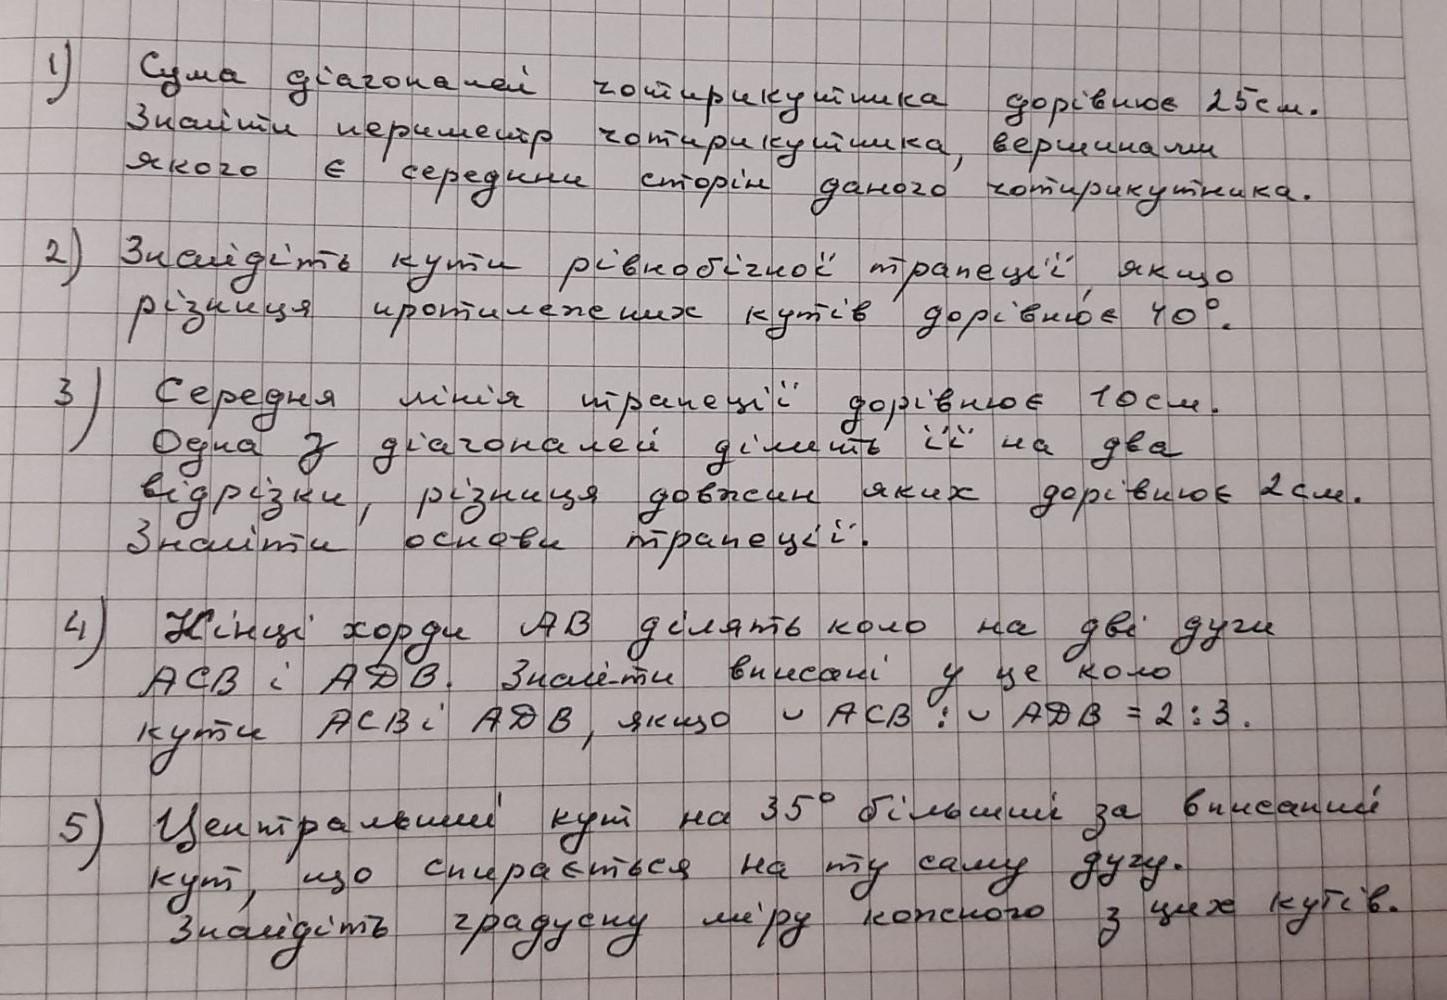 1) Сума діагоналей чотирикутника дорівнює 25см.
Знайти периметр чотирикутника, вершинами
якого є середини сторін даного чотирикутника.
2) Знайдіть кути рівнобічної трапеції, якщо
різниця протилежних кутів дорівнює 40°.
3) Середня лінія трапеції дорівнює 10см.
Одна з діагоналей ділить її на два
відрізки, різниця довжин яких дорівнює 2см.
Знайти основи трапеції.
4) Кінці хорди AB ділять коло на дві дуги
ACB і ADB. Знайти вписані у це коло
кути ACB і ADB, якщо ∪ ACB : ∪ ADB = 2 : 3.
5) Центральний кут на 35° більший за вписаний
кут, що спирається на ту саму дугу.
Знайдіть градусну міру кожного з цих кутів.